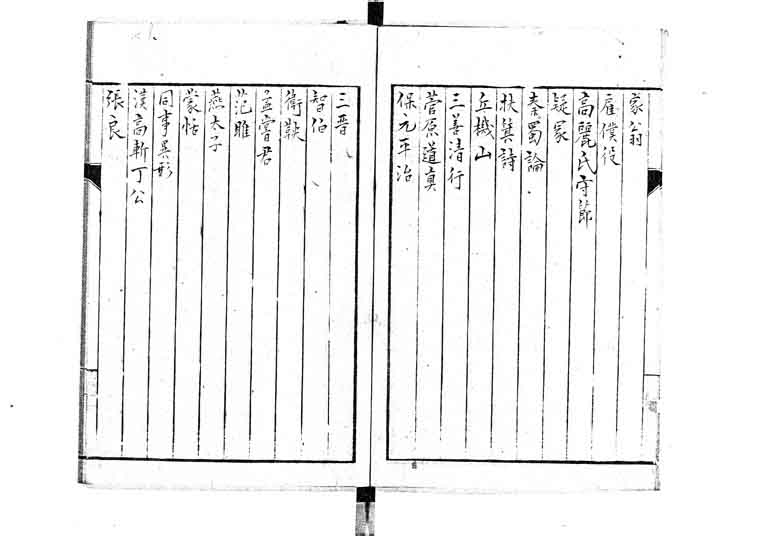 家翁
雇僕役
高麗氏守節
疑冢
秦蜀論
扶箕詩
丘機山
三善清行
菅原道真
保元平治
三晋
智伯
衛鞅
孟嘗君
范雎
燕太子
蒙恬
同事異形
漢高斬丁公
張良